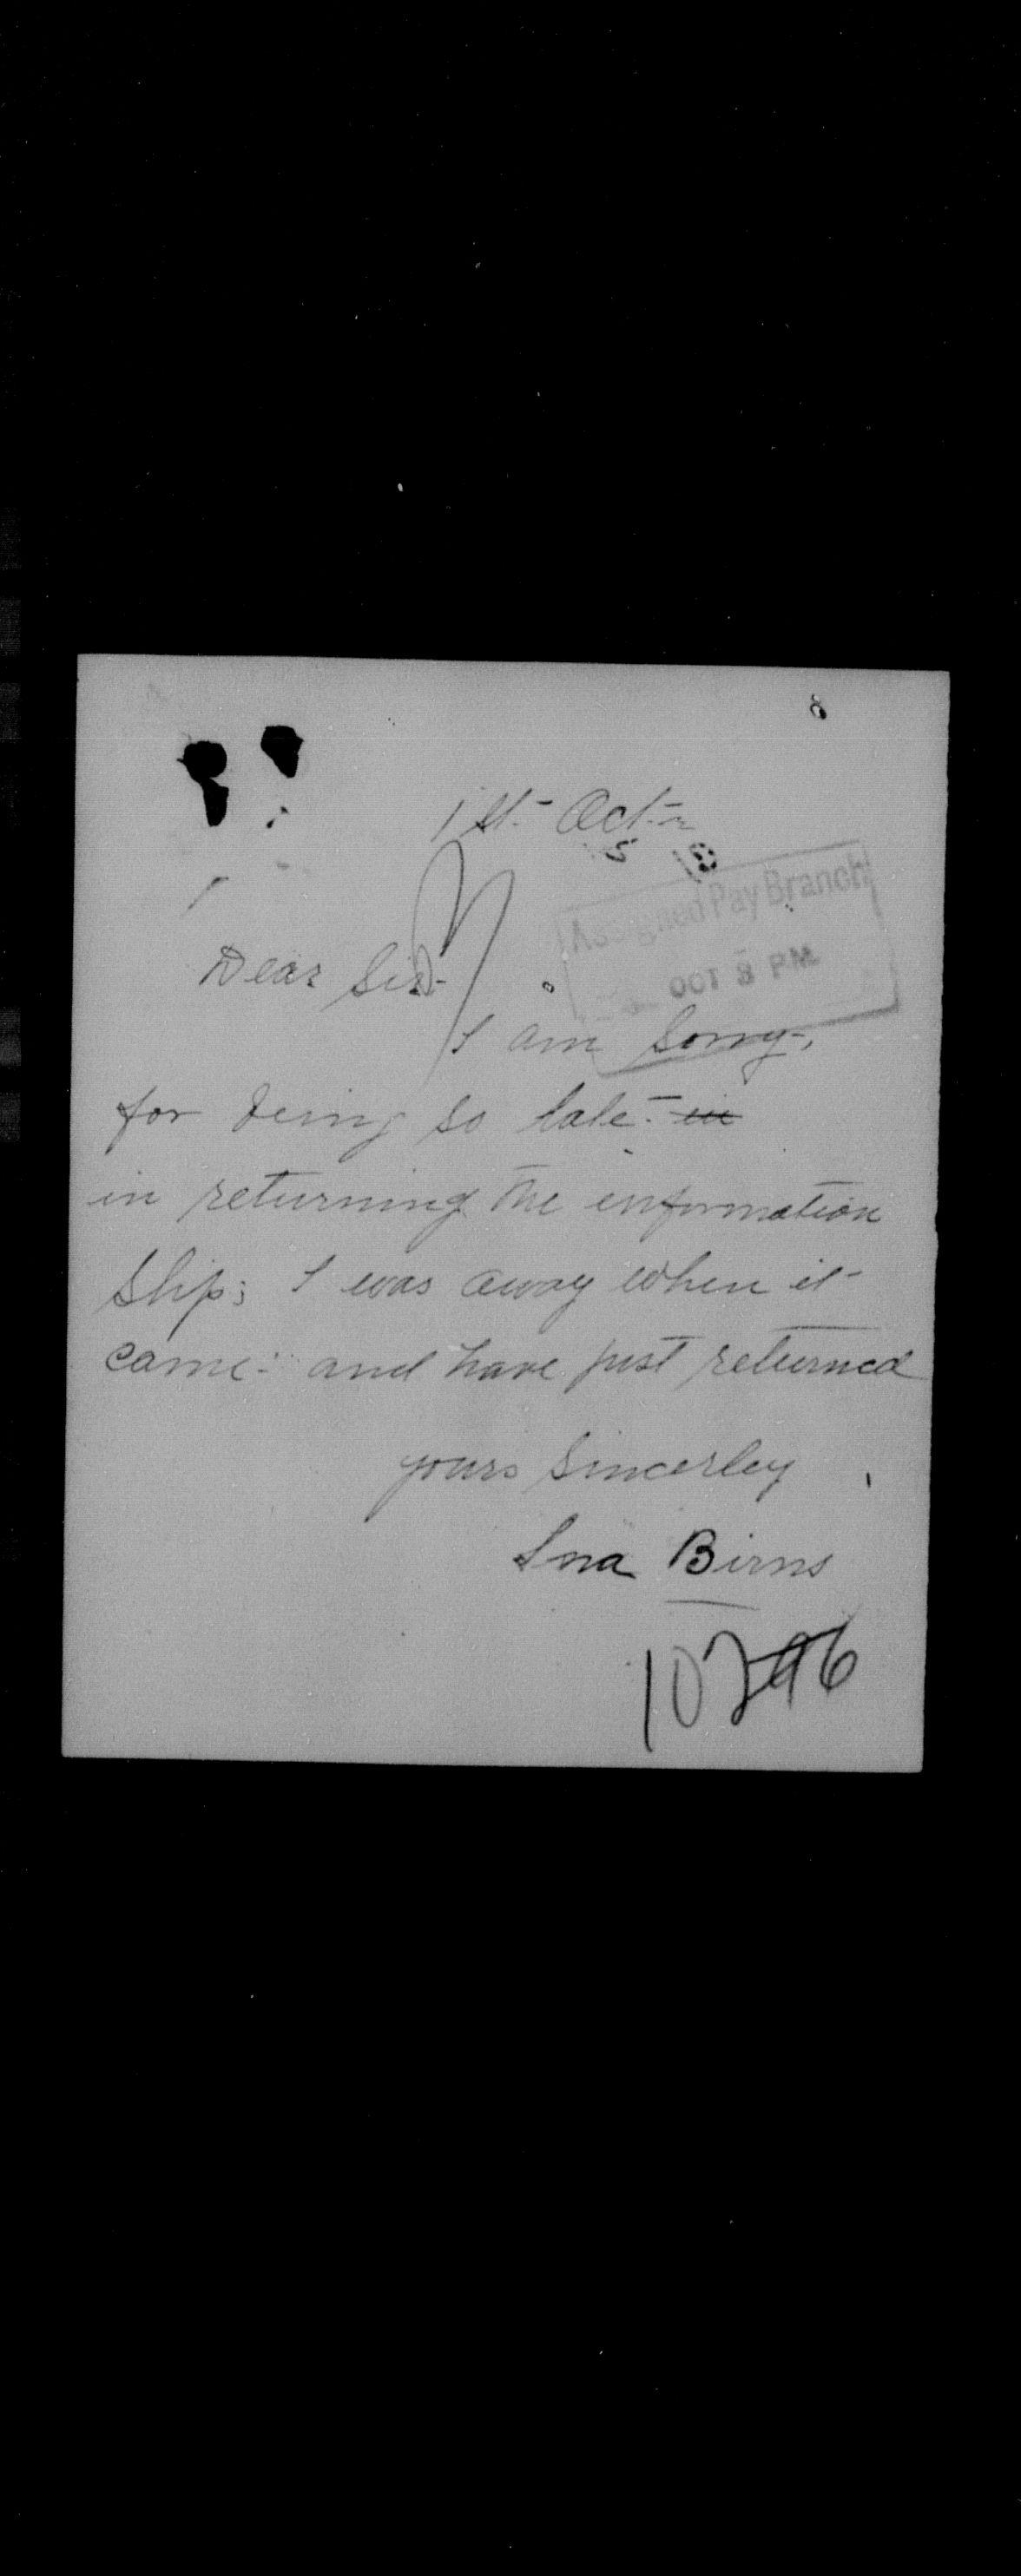 1st Oct
Assigned Pay Branch
OCT 8 PM
Dear Sir
I am sorry,
for being so late in
in returning the information
slip; I was away when it
came and have just returned
yours Sincerley
Ina Birns